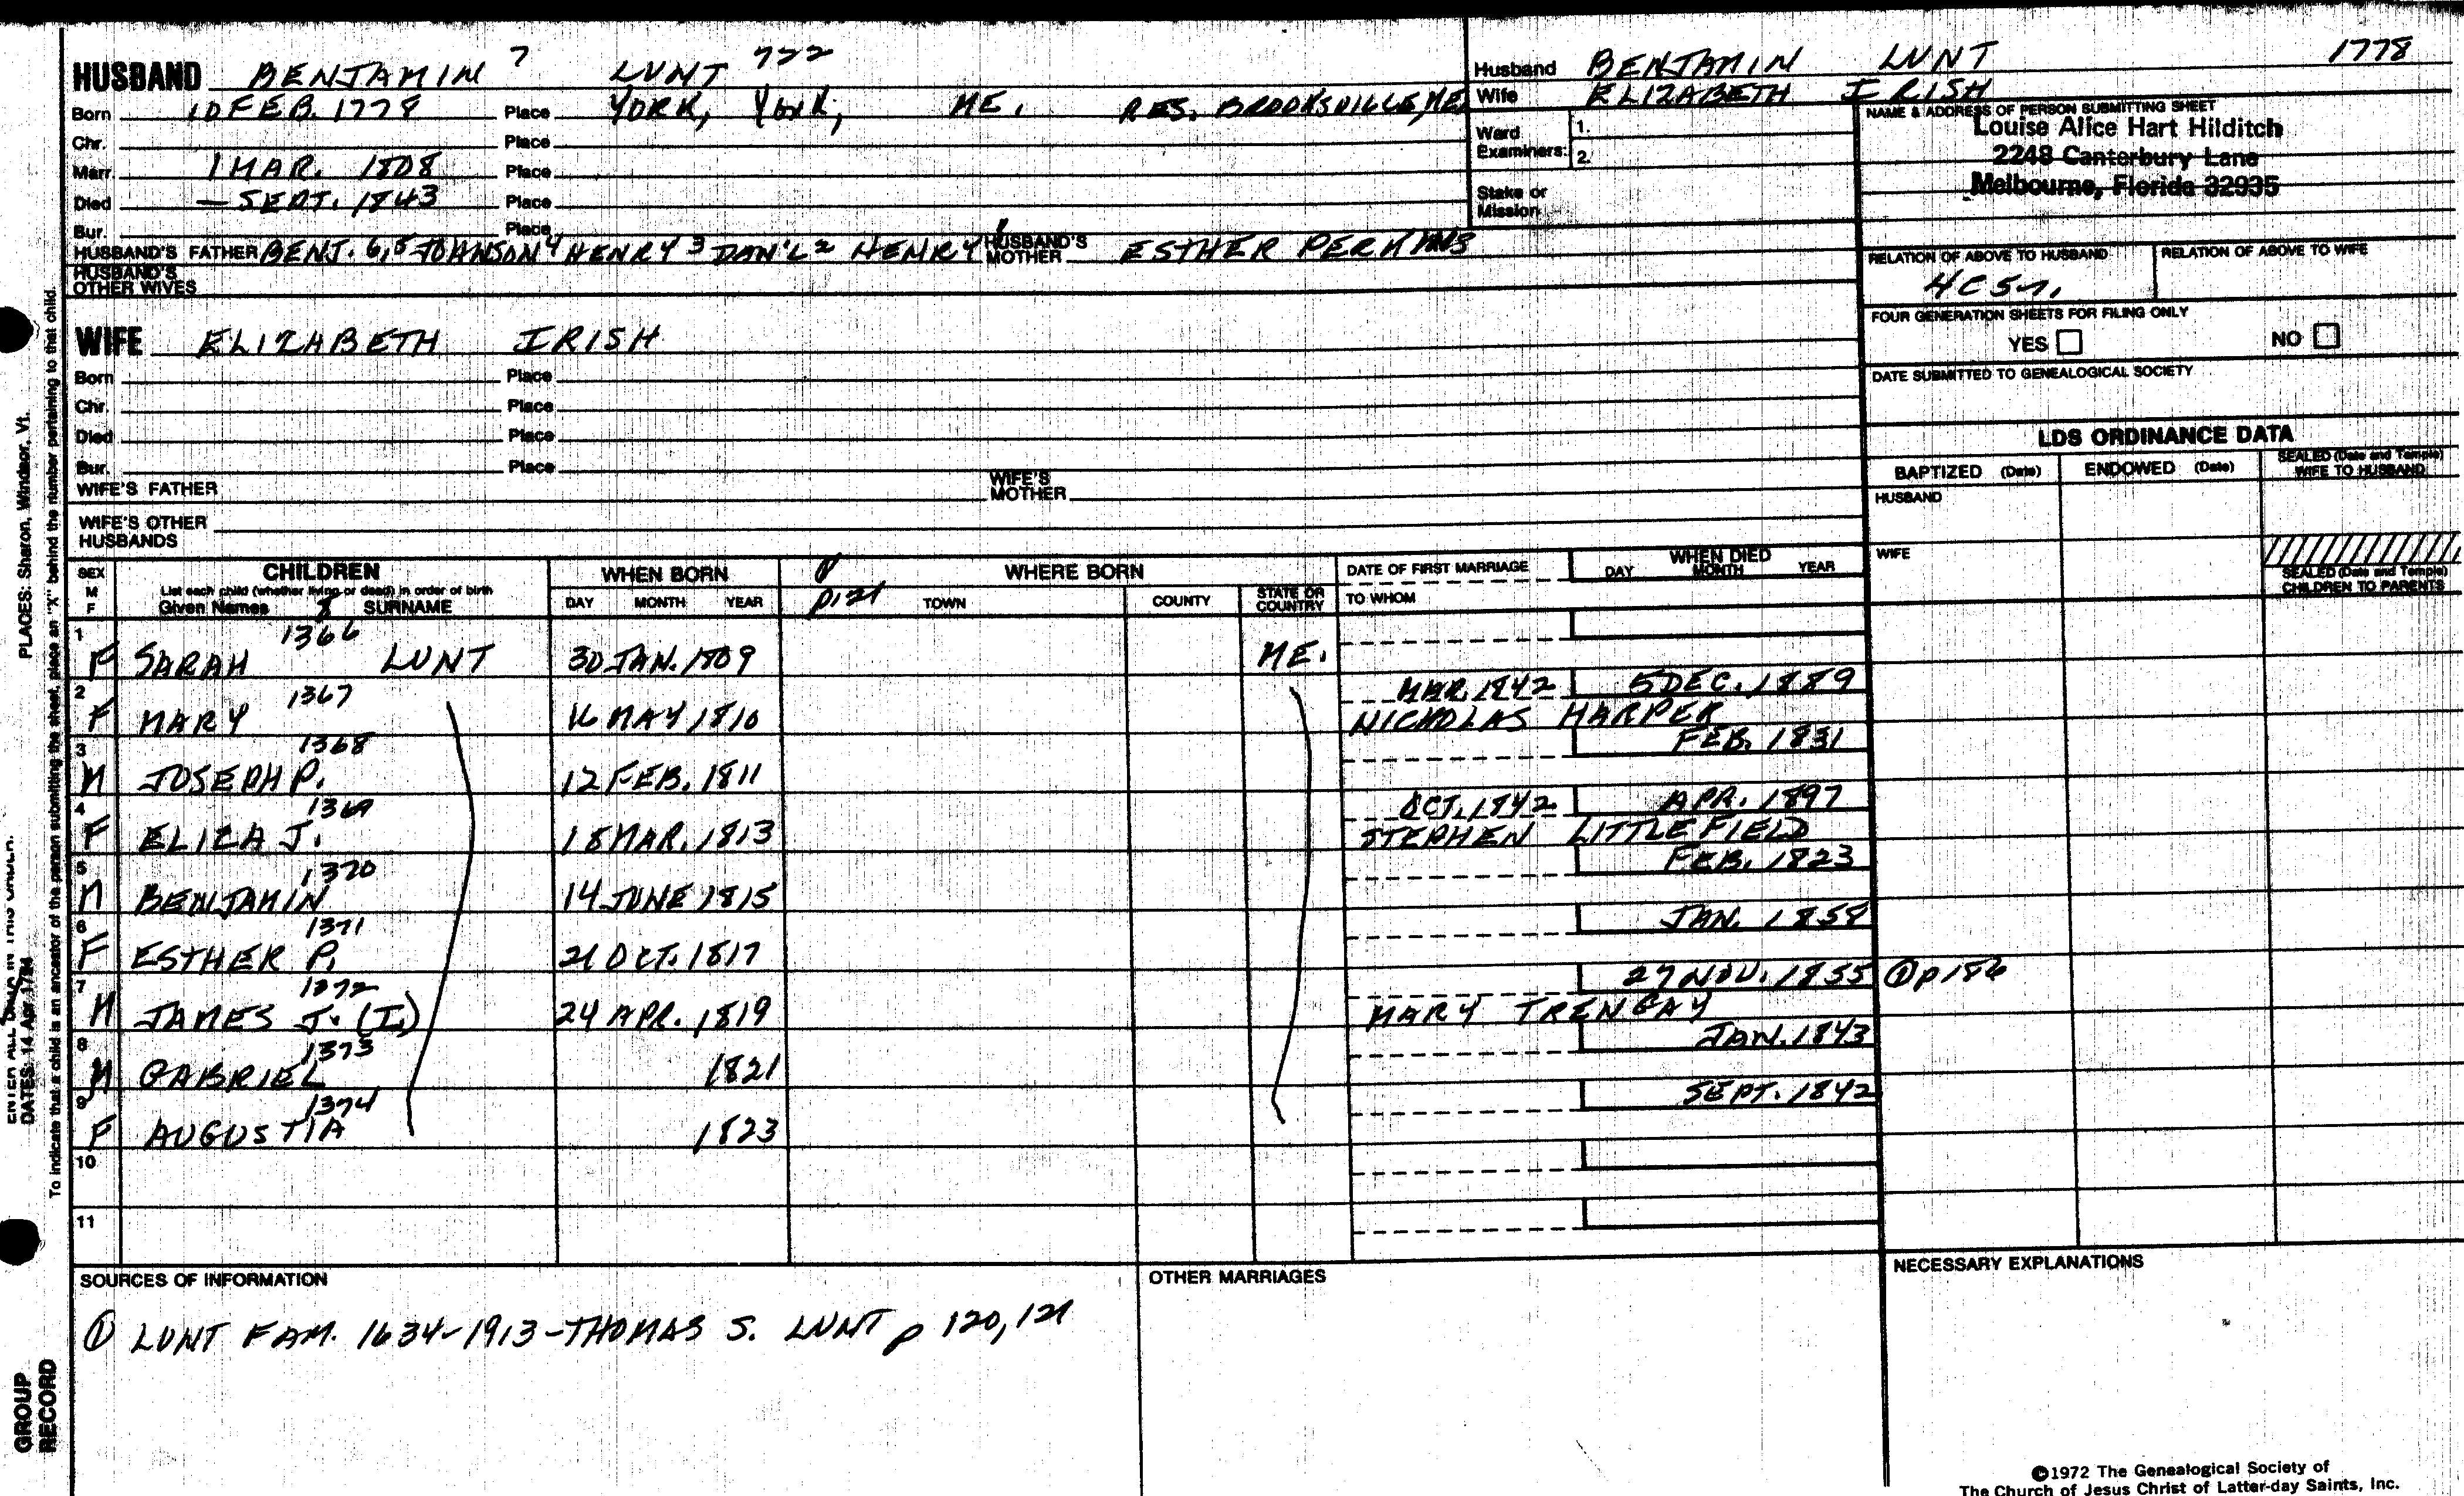 HUSBAND BENJAMIN 7 LUNT 722
Born 10 FEB. 1778 Place YORK, YORK, ME. RES. BROOKSVILLE, ME
Chr. Place
Marr. 1 MAR. 1808 Place
Died — SEPT. 1843 Place
Bur. Place
HUSBAND'S FATHER BENJ. 6,5 JOHNSON 4 HENRY 3 DAN'L 2 HENRY 1 HUSBAND'S MOTHER ESTHER PERKINS
HUSBAND'S OTHER WIVES
WIFE ELIZABETH IRISH
Born Place
Chr. Place
Died Place
Bur. Place
WIFE'S FATHER WIFE'S MOTHER
WIFE'S OTHER HUSBANDS
Husband BENJAMIN LUNT 1778
Wife ELIZABETH IRISH
Ward Examiners: 1. 2.
Stake or Mission
NAME & ADDRESS OF PERSON SUBMITTING SHEET
Louise Alice Hart Hilditch
2248 Canterbury Lane
Melbourne, Florida 32935
RELATION OF ABOVE TO HUSBAND RELATION OF ABOVE TO WIFE
4C5r.
FOUR GENERATION SHEETS FOR FILING ONLY
YES NO
DATE SUBMITTED TO GENEALOGICAL SOCIETY
LDS ORDINANCE DATA
BAPTIZED (Date) ENDOWED (Date) SEALED (Date and Temple) WIFE TO HUSBAND
HUSBAND
WIFE
SEALED (Date and Temple) CHILDREN TO PARENTS
SEX M F
CHILDREN
List each child (whether living or dead) in order of birth
Given Names 8 SURNAME
WHEN BORN
DAY MONTH YEAR
WHERE BORN
p121 TOWN COUNTY STATE OR COUNTRY
DATE OF FIRST MARRIAGE
TO WHOM
WHEN DIED
DAY MONTH YEAR
1 1366
F SARAH LUNT 30 JAN. 1809 ME.
2 1367 MAR. 1842 5 DEC. 1889
F MARY 16 MAY 1810 NICHOLAS HARPER
3 1368 FEB. 1831
M JOSEPH P. 12 FEB. 1811
4 1369 OCT. 1842 APR. 1897
F ELIZA J. 18 MAR. 1813 STEPHEN LITTLEFIELD
5 1370 FEB. 1823
M BENJAMIN 14 JUNE 1815
6 1371 JAN. 1858
F ESTHER P. 21 OCT. 1817
7 1372 27 NOV. 1855 ① p186
M JAMES J. (I.) 24 APR. 1819 MARY TRENGAY
8 1373 JAN. 1843
M GABRIEL 1821
9 1374 SEPT. 1842
F AUGUSTIA 1823
10
11
SOURCES OF INFORMATION
① LUNT FAM. 1634-1913-THOMAS S. LUNT p 120, 121
OTHER MARRIAGES
NECESSARY EXPLANATIONS
©1972 The Genealogical Society of
The Church of Jesus Christ of Latter-day Saints, Inc.
PLACES: Sharon, Windsor, Vt.
DATES: 14 Apr 1794
To indicate that a child is an ancestor of the person submitting the sheet, place an "X" behind the number pertaining to that child.
GROUP
RECORD